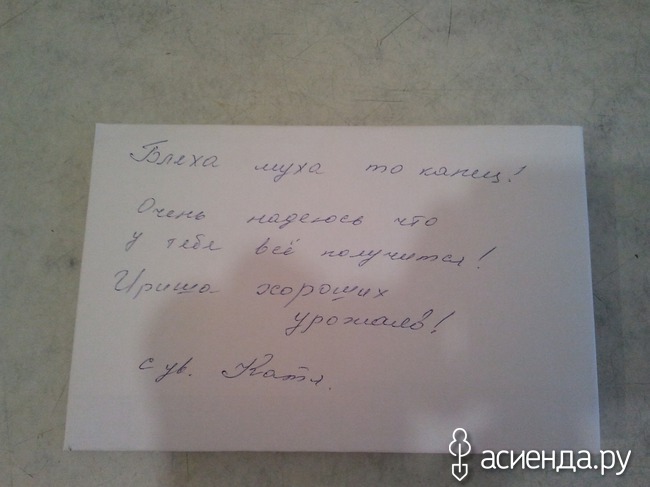 Бляха муха то капец!
Очень надеюсь что
у тебя всё получится!
Ириша хороших
урожаев!
с ув. Катя.
асиенда.ру